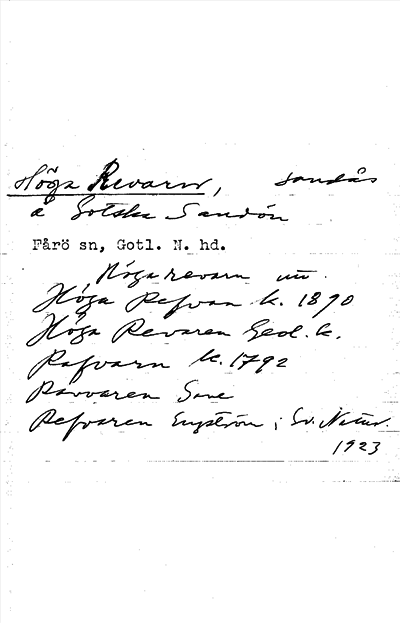 Höga Revarn, sandås
å Gotska Sandön
Fårö sn, Gotl. N. hd.
Högarevarn utt.
Höga Refvan k. 1890
Höga Revaren Geol. k.
Rafvarn k. 1792
Rävvaren Save
Refvaren Engström i Sv. Natur.
1923